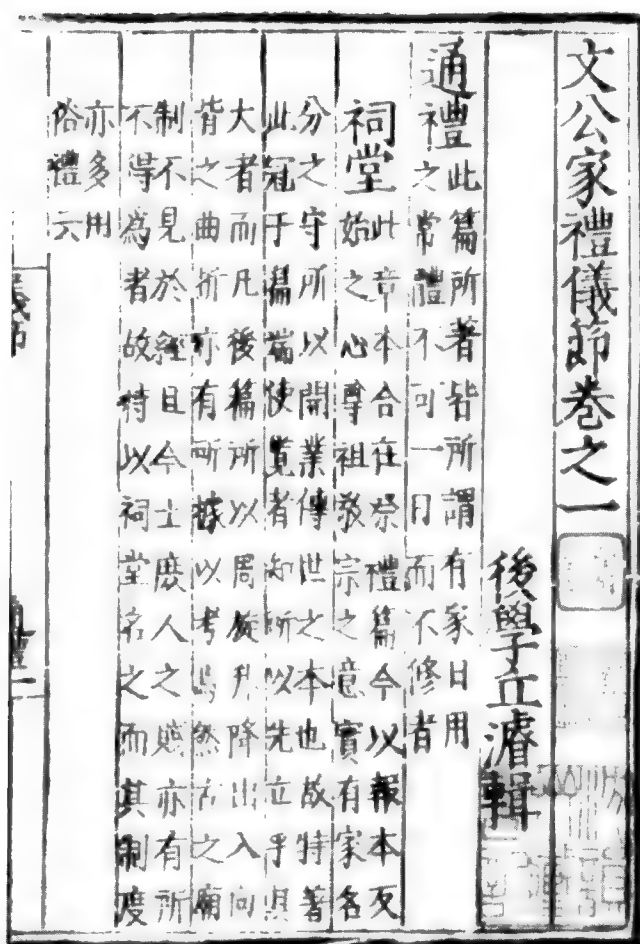 文公家禮儀節卷之一
後學丘濬輯
通禮此篇所著皆所謂有家日用
之常體不可一日而不修者
祠堂此章本合在祭禮篇今以報本反
始之心尊祖敬宗之意實有家名
分之守所以開業傳世之本也故特著
此冠于篇端使覽者知所以先立乎其
大者而凡後篇所以周旋升降出入向
背之曲折亦有所據以考焉然古之廟
制不見於經且今士庶人之賤亦有所
不得為者故特以祠堂名之而其制度
亦多用
俗禮云